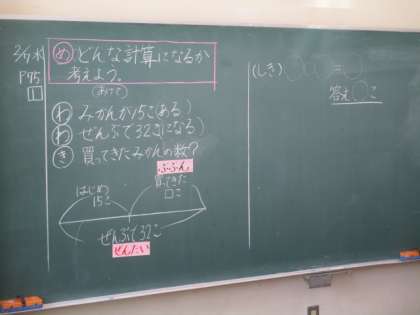 め どんな計算になるか
考えよう。
P75
1
わ みかんが15こ(ある)
わ ぜんぶで32こ(になる)
き 買ってきたみかんの数?
ぶぶん
はじめ
15こ
買ってきた
□こ
ぜんぶで32こ
ぜんたい
(しき) ○○○=○
答え○こ